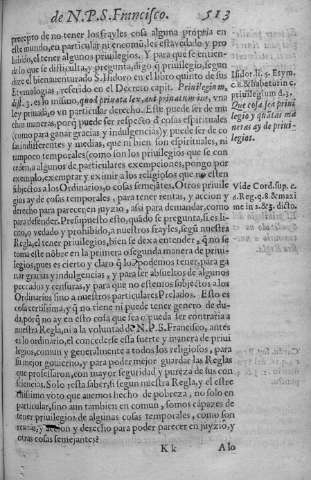 de N.P.S. Francisco. 513
precepto de no tener los frayles cosa alguna propria en
este mundo, en particular ni en comũ, les esta vedado y pro
hibido, el tener algunos priuilegios. Y para que se entien-
do lo que se dificulta, y pregunta, digo q̃ priuilegio, segun
dize el bienauenturado S. Isidoro en el libro quinto de sus
Etymologias, referido en el Decreto capit. Priuilegium,
dist. 3. es lo mismo, quod priuata lex, aut priuatum ius, vna
ley priuada, o vn particular derecho. Este puede ser de mu
chas maneras, porq̃ puede ser respecto de cosas espirituales
(como para ganar gracias e indulgencias) y puede ser de co
sas indiferentes y medias, que ni bien son espirituales, ni
tampoco temporales (como son los priuilegios que se con
ceden, a algunos de particulares exempciones, pongo por
exemplo, exemptar y eximir a los religiosos que no esten
subjectos a los Ordinarios, o cosas semejãtes. Otros priuile
gios ay de cosas temporales, para tener rentas, y accion y
derecho para parecer en juyzio, asi para demandar, como
para defender. Presupuesto esto, quando se pregunta, si es li-
cito, o vedado y prohibido, a nuestros frayles, segũ nuestra
Regla, el tener priuilegios, bien se dexa entender, q̃ no se
toma este nõbre en la primera o segunda manera de priui-
legios, pues es cierto y claro q̃ los podemos tener, para ga
nar gracias y indulgencias, y para ser absueltos de algunos
peccados y censuras, y para que no estemos subjectos a los
Ordinarios sino a nuestros particulares Prelados. Esto es
cosa certissima, y q̃ no tiene ni puede tener genero de du-
da, porq̃ no ay en esto cosa que sea o pueda ser contraria a
nuestra Regla, ni a la voluntad de N.P.S. Francisco, antes
es lo ordinario, el concederse esta suerte y manera de priui
legios, comun y generalmente a todos los religiosos, para
su mejor gouierno, y para poder mejor guardar las Reglas
que professaron, con mayor seguridad y pureza de sus con
sciencias. Solo resta saber, si segun nuestra Regla, y el estre
chissimo voto que auemos hecho de pobreza, no solo en
particular, sino aun tambien en comun, somos capazes de
tener priuilegios de algunas cosas temporales, como son
rentas, y accion y derecho para poder parecer en juyzio, y
otras cosas semejantes?
Kk A lo
Isidor. li. 5. Etym.
c. & habetur in c.
priuilegium d. 3.
Que cosa sea priui
legio y quãtas ma
neras ay de priui-
legios.
Vide Cord. sup. c.
2. Reg. q. 8. & maxi
me in 2. & 3. dicto.